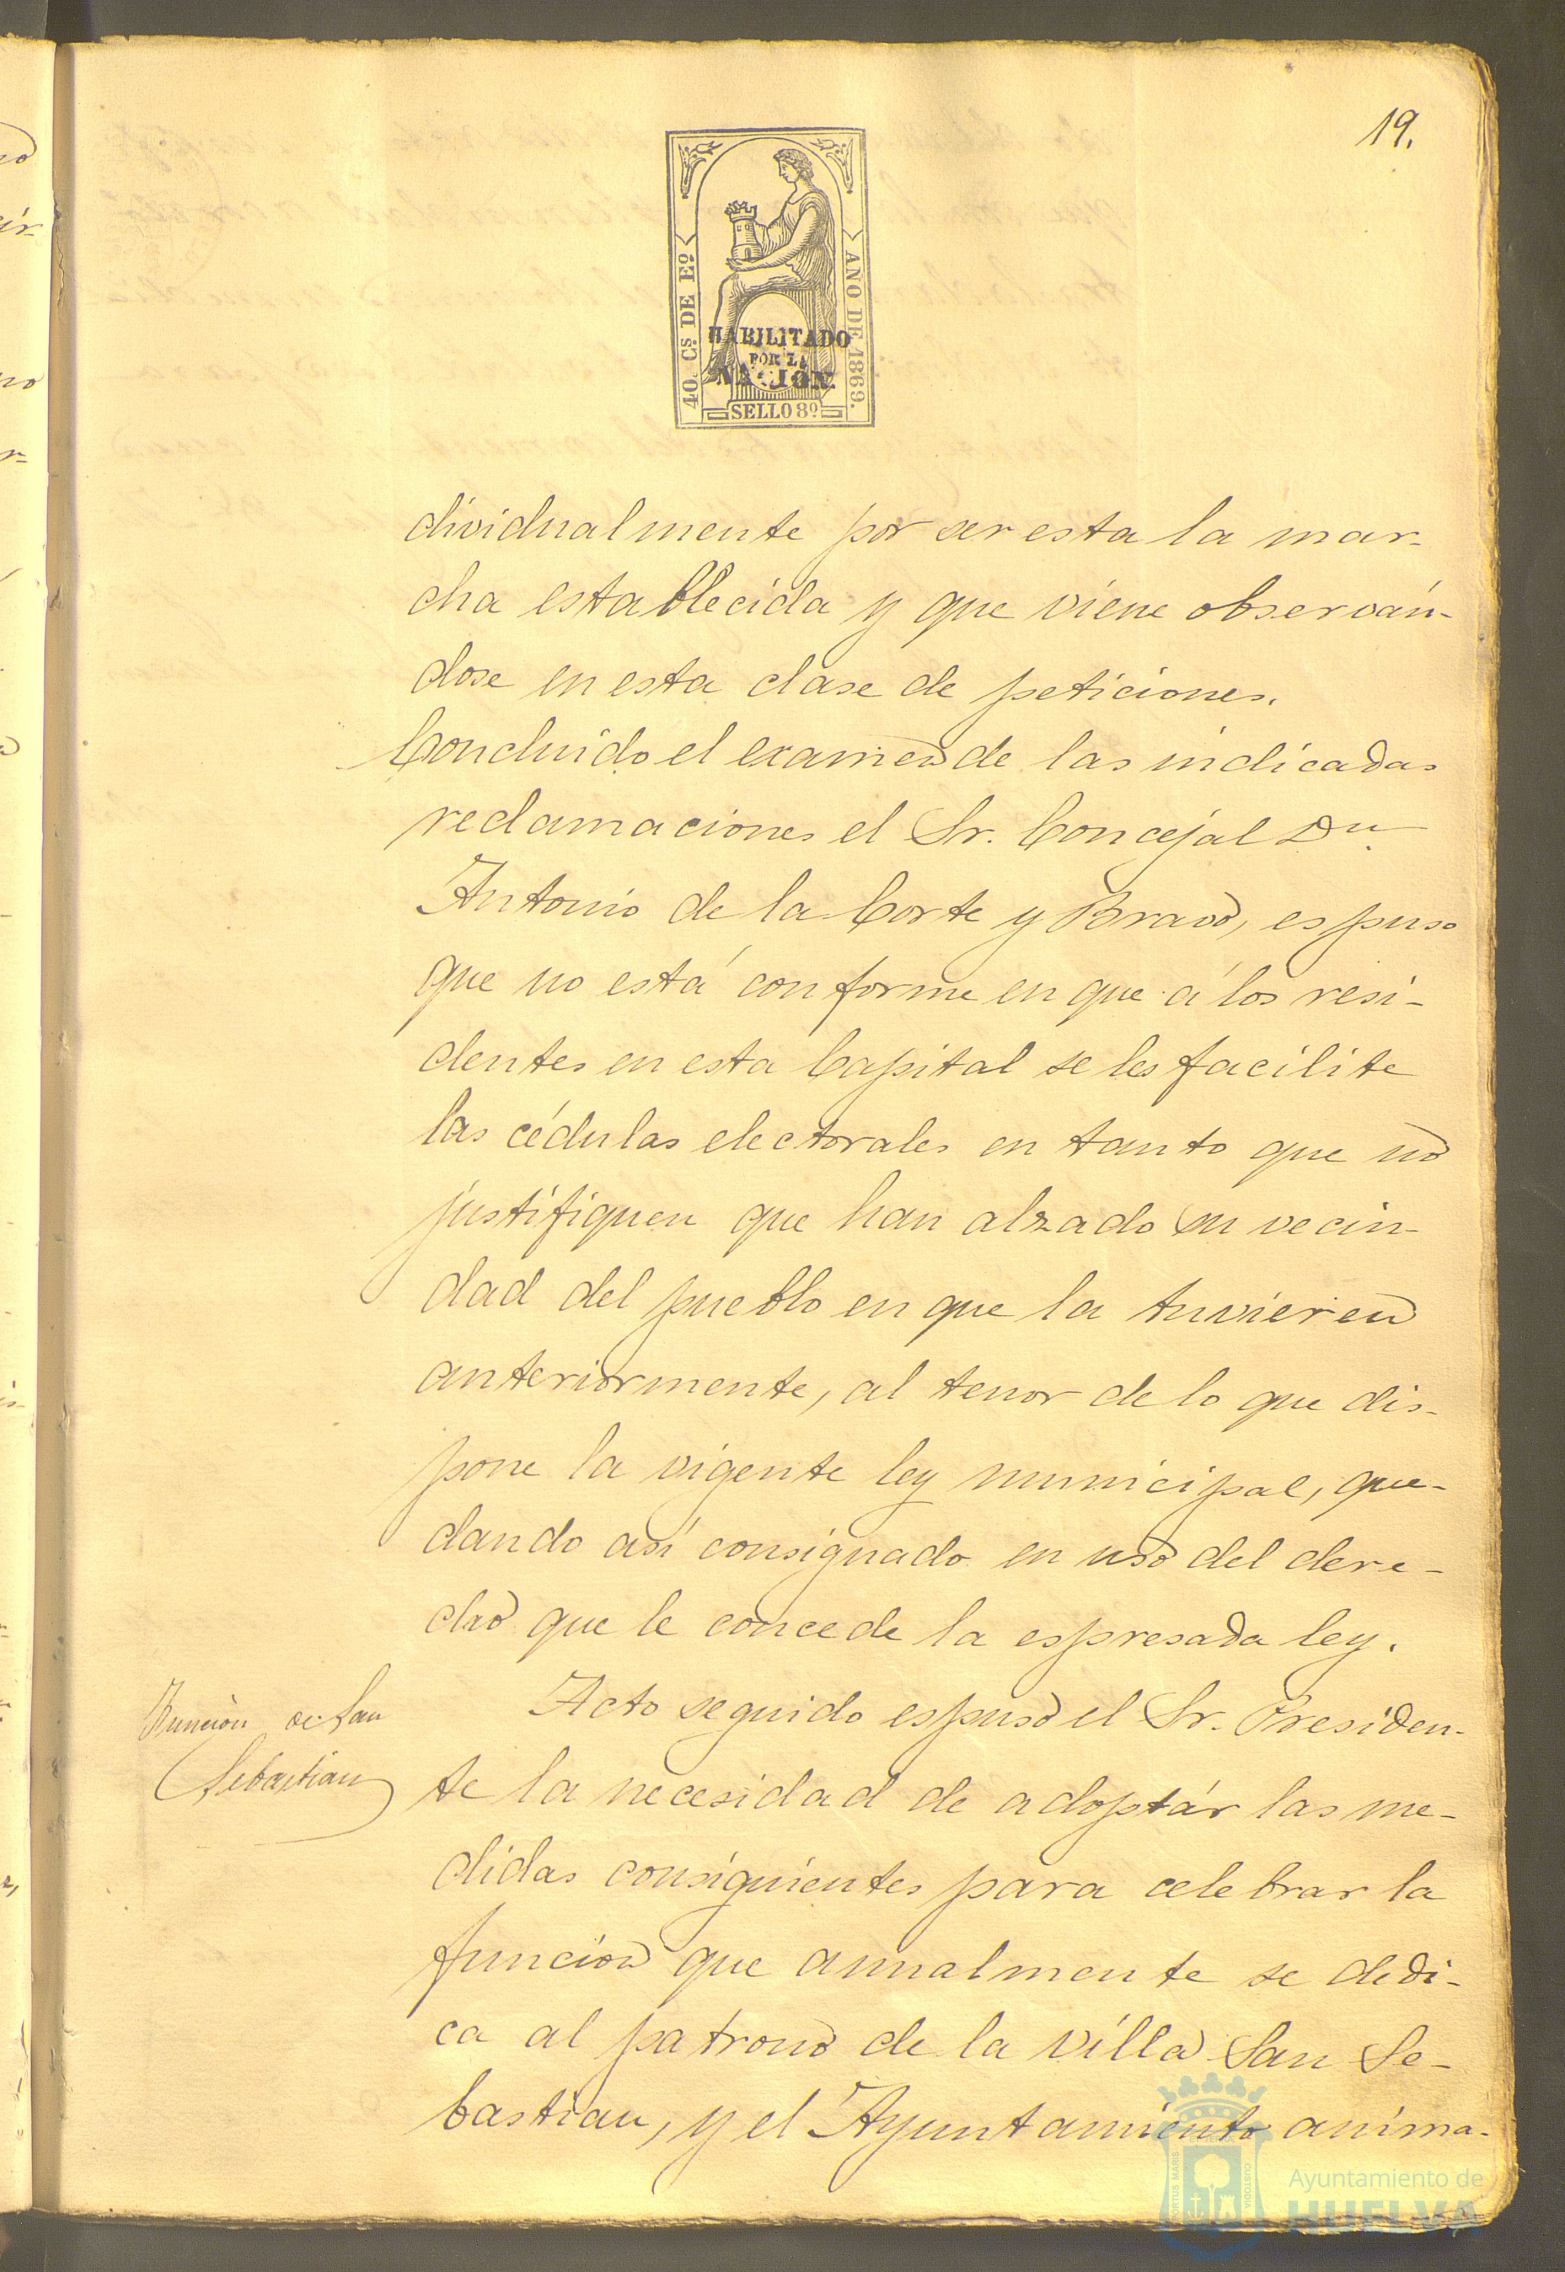 19.
40. Cs. DE Eo.
AÑO DE 1869.
HABILITADO
POR LA
NACION.
SELLO 8o.
dividualmente por ser esta la mar-
cha establecida y que viene observán-
dose en esta clase de peticiones.
Concluido el examen de las indicadas
reclamaciones el Sr. Concejal Dn.
Antonio de la Corte y Bravo, espuso
que no está conforme en que á los resi-
dentes en esta Capital se les facilite
las cédulas electorales en tanto que no
justifiquen que han alzado su vecin-
dad del pueblo en que la tuvieren
anteriormente, al tenor de lo que dis-
pone la vigente ley municipal, que-
dando así consignado en uso del dere-
cho que le concede la espresada ley.
Función de San
Sebastian
Acto seguido espuso el Sr. Presiden-
te la necesidad de adoptár las me-
didas consiguientes para celebrar la
funcion que anualmente se dedi-
ca al patrono de la villa San Se-
bastian, y el Ayuntamiento anima-
PORTUS MARIS
CUSTODIA
Ayuntamiento de
HUELVA